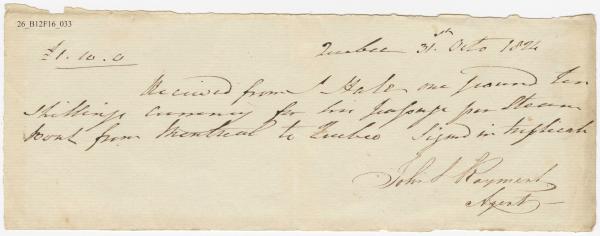 26_B12F16_033
Quebec 31st Octo 1824
£1.10.0
Received from J Hale one pound Ten
shillings currency for his passage per Steam
boat from Montreal to Quebec Signed in triplicate
John S Rayment
Agent